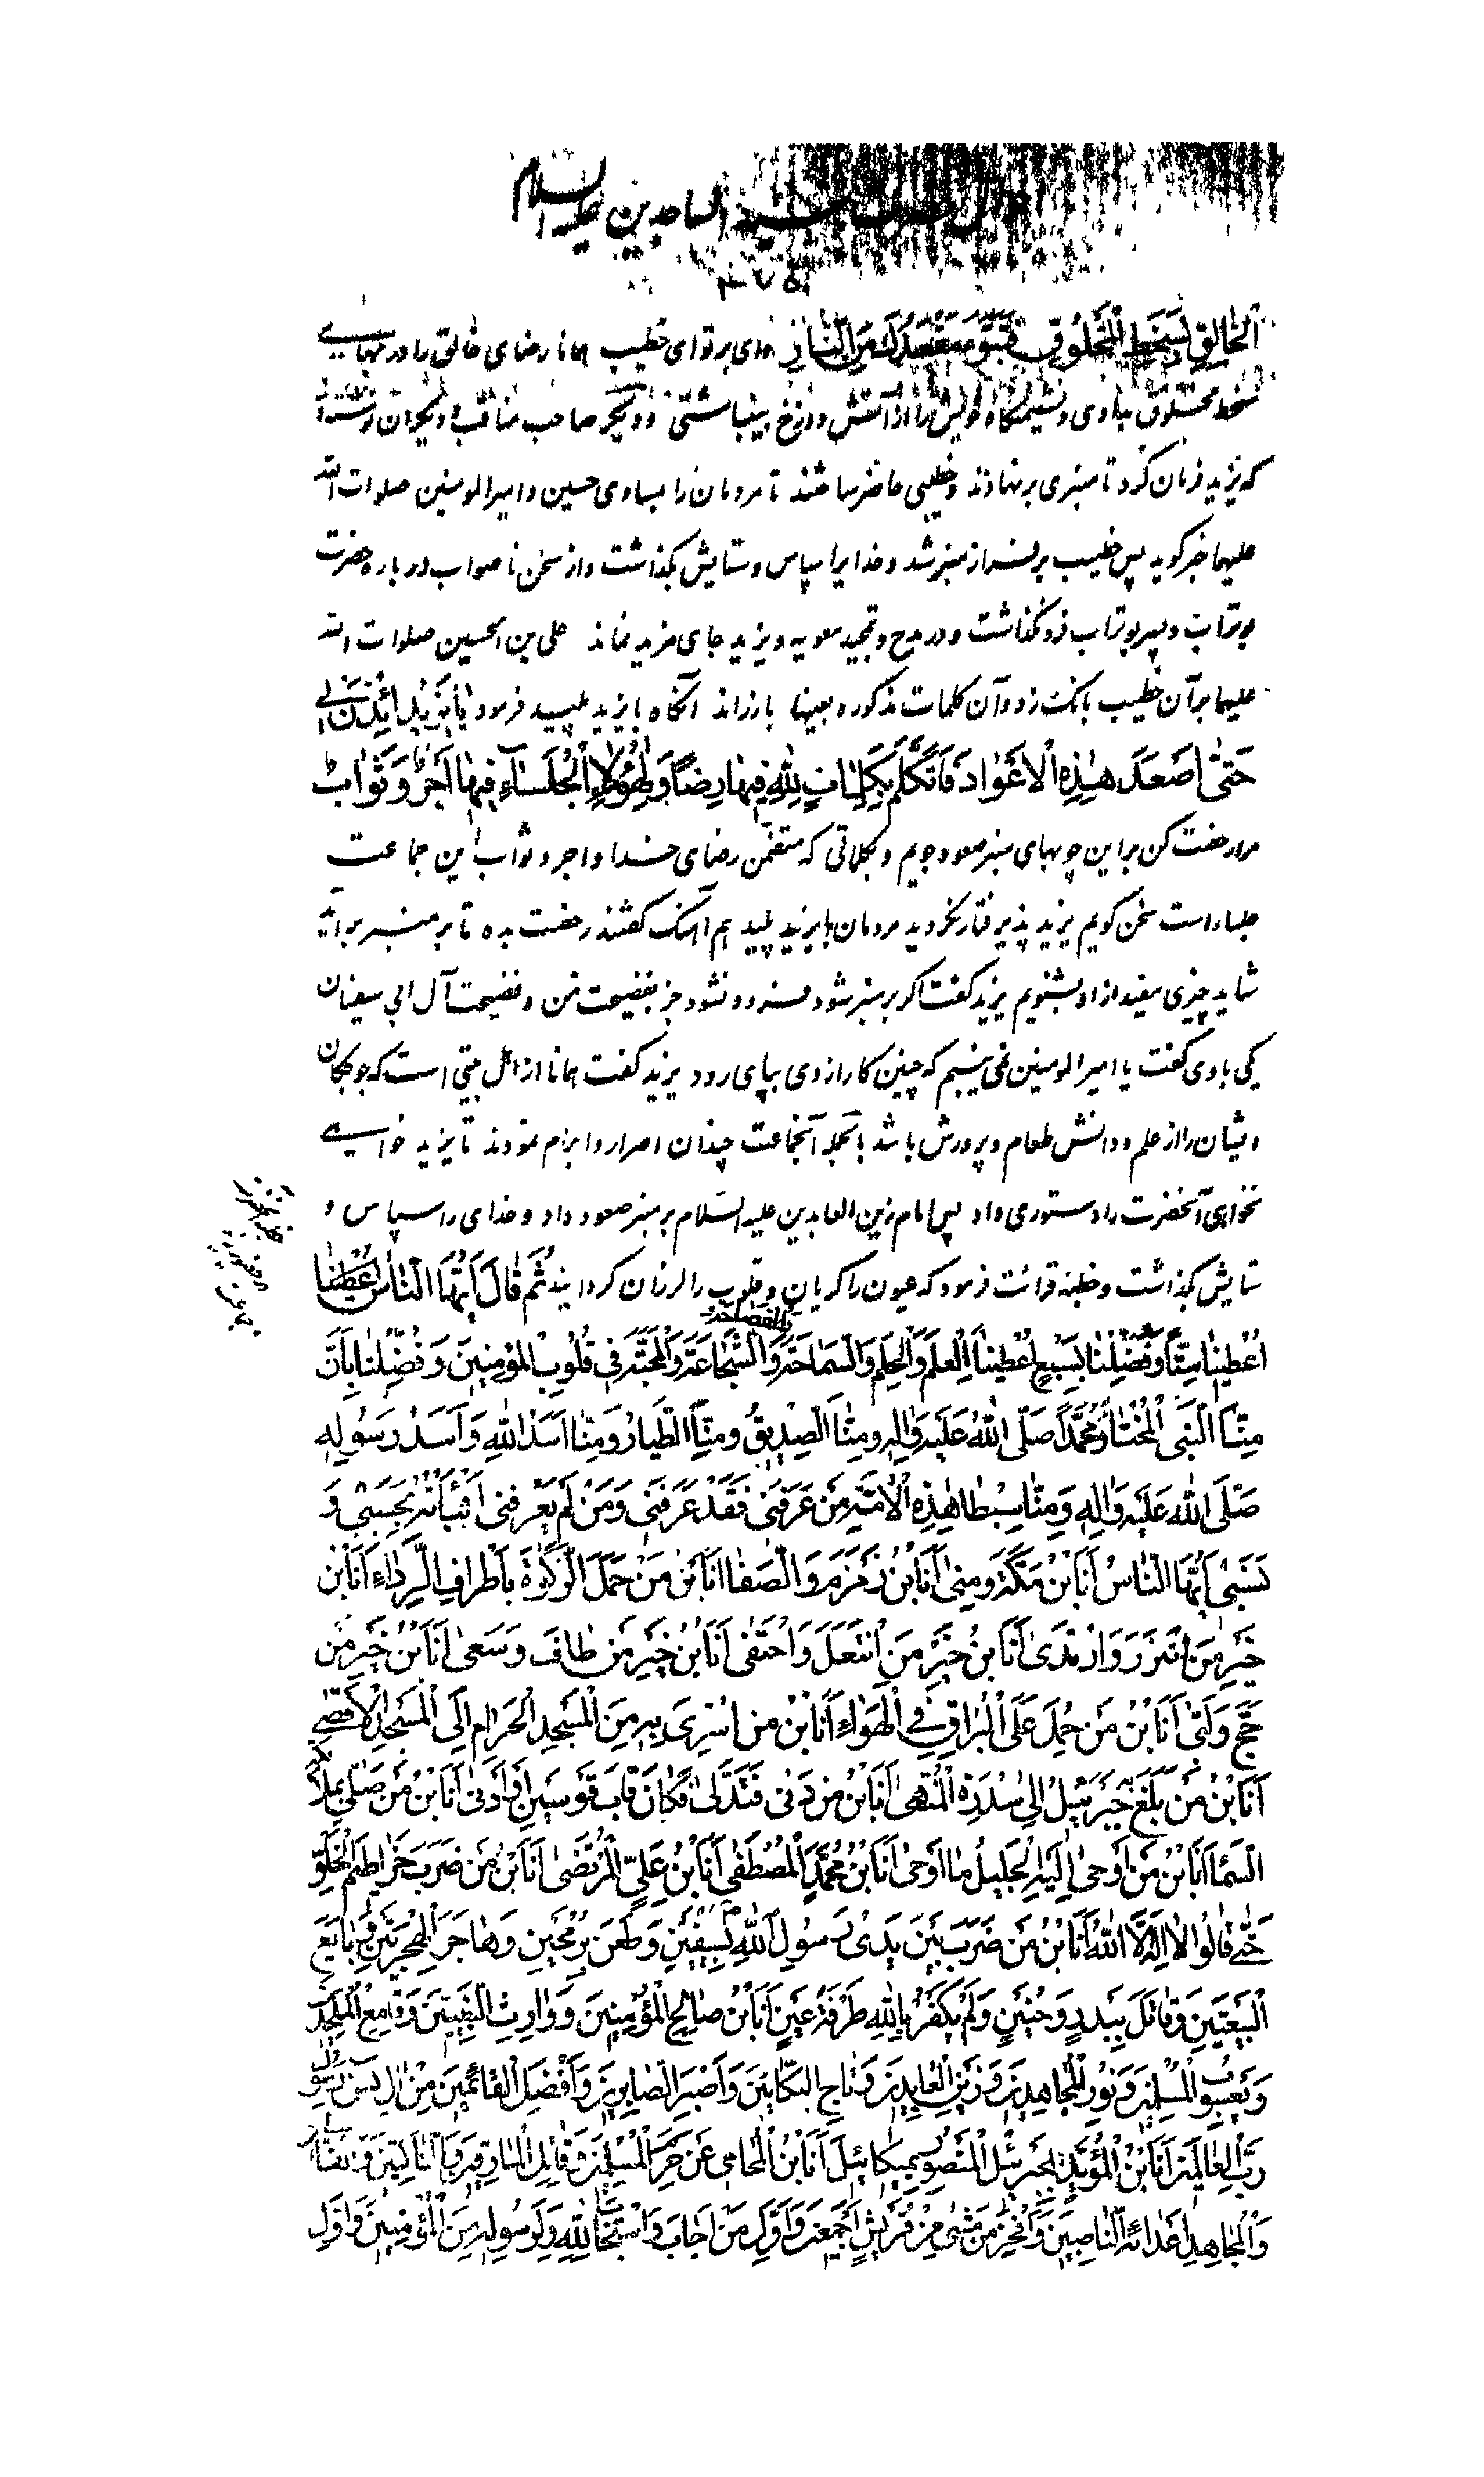 سید الساجدین علیه السلام
الخالِقِ بِسَخَطِ المَخلُوقِ فَتَبَوَّء مَقعَدَكَ مِنَ النّارِ وای بر تو ای خطیب همانا رضای خالق را در بهای
سخط مخلوق بدادی و نشیمنگاه خویش را از آتش دوزخ بینباشتی و دیگر صاحب مناقب و دیگران نوشته‌اند
که یزید فرمان کرد تا منبری بر نهادند و خطیبی حاضر ساختند تا مردمان را بمساوی حسین و امیرالمومنین صلوات الله
علیهما خبر گوید پس خطیب بر فراز منبر شد و خدایرا سپاس و ستایش بگذاشت و از سخن ناصواب درباره حضرت
بوتراب و پسر بوتراب فرو نگذاشت و در مدح و تمجید معویه و یزید جای مزید نماند علی بن الحسین صلوات الله
علیهما بر آن خطیب بانگ زد و آن کلمات مذکوره بعینها بازراند آنگاه با یزید پلید فرمود یا یَزیدُ ائذَن لی
حَتّی اَصعَدَ هٰذِهِ الاَعوادَ فَاَتَکَلَّمُ بِکَلِماتٍ لِلّٰهِ فیها رِضاً وَ لِهٰؤُلاءِ الجُلَساءِ فیها اَجرٌ وَ ثَوابٌ
مرا رخصت کن بر این چوبهای منبر صعود جویم و بکلماتی که متضمن رضای خدا و اجر و ثواب این جماعت
جلساء است سخن گویم یزید پذیرفتار نگردید مردمان با یزید پلید هم آهنگ گفتند رخصت بده تا بر منبر برآید
شاید چیزی مفید از او بشنویم یزید گفت اگر بر منبر شود فرود نشود جز بفضیحت من و فضیحت آل ابی سفیان
یکی با وی گفت یا امیرالمومنین نمی‌بینیم که چنین کار از وی بپای رود یزید گفت همانا از اهل بیتی است که جوجگان
ایشان را از علم و دانش طعام و پرورش باشد بالجمله آنجماعت چندان اصرار و ابرام نمودند تا یزید خواهی
نخواهی آنحضرت را دستوری داد پس امام زین العابدین علیه السلام بر منبر صعود داد و خدای را سپاس و
ستایش بگذاشت و خطبه قرائت فرمود که عیون را گریان و قلوب را لرزان گردانید ثُمَّ قالَ اَیُّهَا النّاسُ اُعطینا
وَالفَصاحَةَ
اُعطینا سِتّاً وَ فُضِّلنا بِسَبعٍ اُعطینَا العِلمَ وَ الحِلمَ وَ السَّماحَةَ وَ الشَّجاعَةَ وَ المَحَبَّةَ فی قُلُوبِ المُؤمِنینَ وَ فُضِّلنا بِاَنَّ
مِنَّا النَّبیَّ المُختارَ مُحَمَّداً صَلَّی اللهُ عَلَیهِ وَ اٰلِهِ وَ مِنَّا الصِّدّیقُ وَ مِنَّا الطَّیّارُ وَ مِنّا اَسَدُ اللهِ وَ اَسَدُ رَسُولِهِ
صَلَّی اللهُ عَلَیهِ وَ اٰلِهِ وَ مِنّا سِبطا هٰذِهِ الاُمَّةِ مَن عَرَفَنی فَقَد عَرَفَنی وَ مَن لَم یَعرِفنی اَنبَأتُهُ بِحَسَبی وَ
نَسَبی اَیُّهَا النّاسُ اَنَا ابنُ مَکَّةَ وَ مِنی اَنَا ابنُ زَمزَمَ وَ الصَّفا اَنَا ابنُ مَن حَمَلَ الزَّکوةَ بِاَطرافِ الرِّداءِ اَنَا ابنُ
خَیرِ مَنِ ائتَزَرَ وَ ارتَدیٰ اَنَا ابنُ خَیرِ مَنِ انتَعَلَ وَ احتَفیٰ اَنَا ابنُ خَیرِ مَن طافَ وَ سَعیٰ اَنَا ابنُ خَیرِ مَن
حَجَّ وَ لَبّیٰ اَنَا ابنُ مَن حُمِلَ عَلَی البُراقِ فِی الهَواءِ اَنَا ابنُ مَن اُسرِیَ بِهِ مِنَ المَسجِدِ الحَرامِ اِلَی المَسجِدِ الاَقصیٰ
اَنَا ابنُ مَن بَلَغَ جَبرَئیلُ اِلیٰ سِدرَةِ المُنتَهیٰ اَنَا ابنُ مَن دَنیٰ فَتَدَلّیٰ فَکانَ قابَ قَوسَینِ اَو اَدنیٰ اَنَا ابنُ مَن صَلّیٰ بِمَلائِکَةِ
السَّماءِ اَنَا ابنُ مَن اَوحیٰ اِلَیهِ الجَلیلُ ما اَوحیٰ اَنَا ابنُ مُحَمَّدٍ المُصطَفیٰ اَنَا ابنُ عَلِیٍّ المُرتَضیٰ اَنَا ابنُ مَن ضَرَبَ خَراطیمَ الخَلقِ
حَتّیٰ قالُوا لا اِلٰهَ اِلَّا اللهُ اَنَا ابنُ مَن ضَرَبَ بَینَ یَدَی رَسُولِ اللهِ بِسَیفَینِ وَ طَعَنَ بِرُمحَینِ وَ هاجَرَ الهِجرَتَینِ وَ بایَعَ
البَیعَتَینِ وَ قاتَلَ بِبَدرٍ وَ حُنَینٍ وَ لَم یَکفُر بِاللهِ طَرفَةَ عَینٍ اَنَا ابنُ صالِحِ المُؤمِنینَ وَ وارِثِ النَّبِیّینَ وَ قامِعِ المُلحِدینَ
وَ یَعسُوبِ المُسلِمینَ وَ نُورِ المُجاهِدینَ وَ زَینِ العابِدینَ وَ تاجِ البَکّائینَ وَ اَصبَرِ الصّابِرینَ وَ اَفضَلِ القائِمینَ مِن اٰلِ یٰس رَسُولِ
رَبِّ العالَمینَ اَنَا ابنُ المُؤَیَّدِ بِجَبرَئیلَ المَنصُورِ بِمیکائیلَ اَنَا ابنُ المُحامی عَن حَرَمِ المُسلِمینَ وَ قاتِلِ المارِقینَ وَ النّاکِثینَ وَ القاسِطینَ
وَ المُجاهِدِ اَعدائَهُ النّاصِبینَ وَ اَفخَرِ مَن مَشیٰ مِن قُرَیشٍ اَجمَعینَ وَ اَوَّلِ مَن اَجابَ وَ استَجابَ لِلّٰهِ وَ لِرَسُولِهِ مِنَ المُؤمِنینَ وَ اَوَّلِ